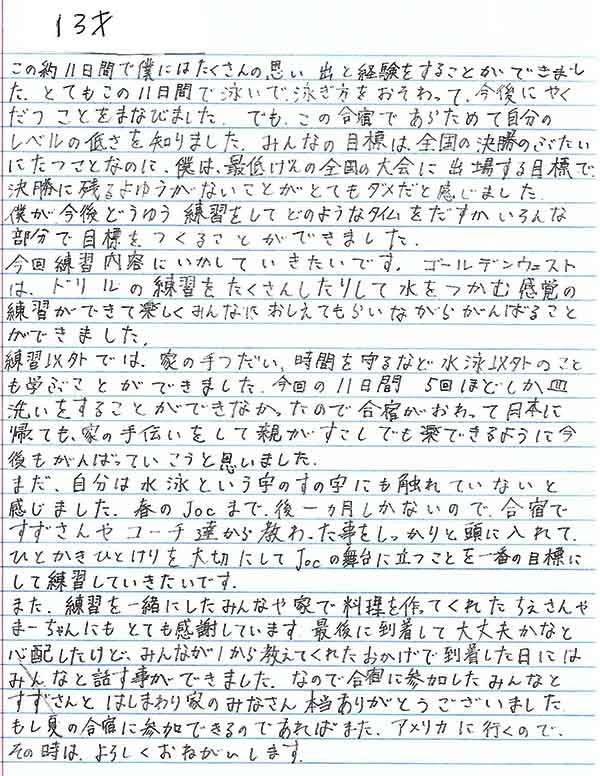 13才
この約11日間で僕にはたくさんの思い出と経験をすることができまし
た。とてもこの11日間で泳いで、泳ぎ方をおそわって、今後にやく
だつことをまなびました。でも、この合宿であらためて自分の
レベルの低さを知りました。みんなの目標は、全国の決勝のぶたい
にたつことなのに、僕は、最低けんの全国の大会に出場する目標で、
決勝に残るよゆうがないことがとてもダメだと感じました。
僕が今後どうゆう練習をしてどのようなタイムをだすかいろんな
部分で目標をつくることができました。
今回練習内容にいかしていきたいです。ゴールデンウェスト
は、ドリルの練習をたくさんしたりして水をつかむ感覚の
練習ができて楽しくみんなにおしえてもらいながらがんばること
ができました。
練習以外では、家の手つだい、時間を守るなど水泳以外のこと
も学ぶことができました。今回の11日間 5回ほどしか皿
洗いをすることができなかったので合宿がおわって日本に
帰ても、家の手伝いをして親がすこしでも楽できるように今
後もがんばっていこうと思いました。
まだ、自分は水泳という字のすの字にも触れていないと
感じました。春のJocまで、後一ヵ月しかないので、合宿で
すずさんやコーチ達から教わった事をしっかりと頭に入れて、
ひとかきひとけりを大切にしてJocの舞台に立つことを一番の目標に
して練習していきたいです。
また、練習を一緒にしたみんなや家で料理を作ってくれたちえさんや
まーちゃんにもとても感謝しています。最後に到着して大丈夫かなと
心配したけど、みんなが1から教えてくれたおかげで到着した日には
みんなと話す事ができました。なので合宿に参加したみんなと
すずさんとはしまわり家のみなさん本当ありがとうございました。
もし夏の合宿に参加できるのであればまた、アメリカに行くので、
その時は、よろしくおねがいします。